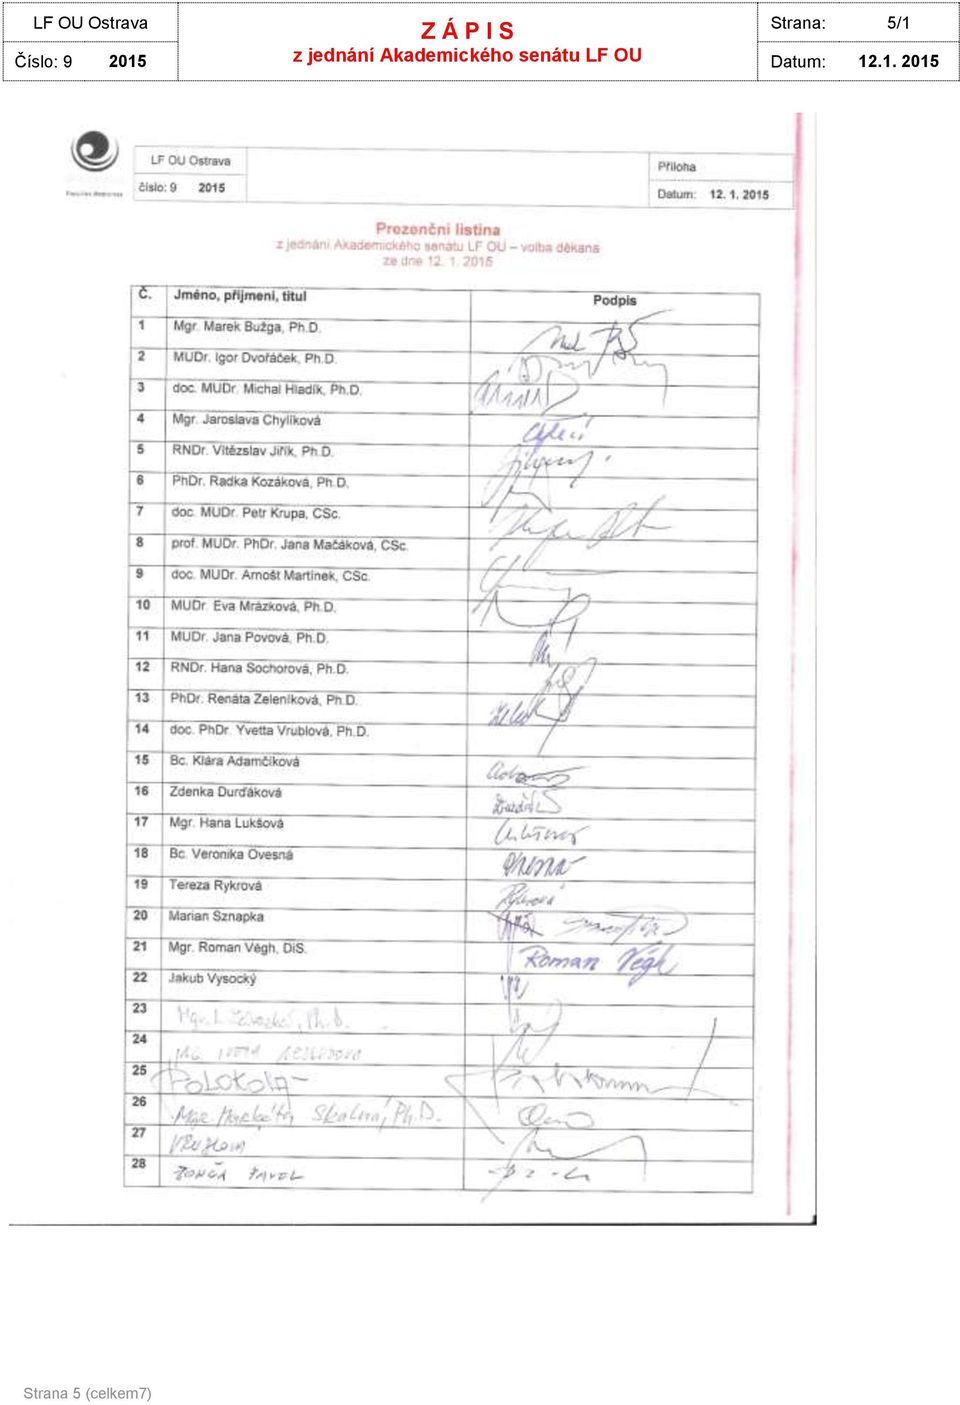 LF OU Ostrava
Číslo: 9 2015
Z Á P I S
z jednání Akademického senátu LF OU
Strana: 5/1
Datum: 12.1. 2015
LF OU Ostrava
číslo: 9 2015
Příloha
Datum: 12. 1. 2015
Prezenční listina
z jednání Akademického senátu LF OU – volba děkana
ze dne 12. 1. 2015
Č. Jméno, příjmení, titul Podpis
1 Mgr. Marek Bužga, Ph.D.
2 MUDr. Igor Dvořáček, Ph.D.
3 doc. MUDr. Michal Hladík, Ph.D.
4 Mgr. Jaroslava Chylíková
5 RNDr. Vítězslav Jiřík, Ph.D.
6 PhDr. Radka Kozáková, Ph.D.
7 doc. MUDr. Petr Krupa, CSc.
8 prof. MUDr. PhDr. Jana Mačáková, CSc.
9 doc. MUDr. Arnošt Martínek, CSc.
10 MUDr. Eva Mrázková, Ph.D.
11 MUDr. Jana Povová, Ph.D.
12 RNDr. Hana Sochorová, Ph.D.
13 PhDr. Renáta Zeleníková, Ph.D.
14 doc. PhDr. Yvetta Vrublová, Ph.D.
15 Bc. Klára Adamčíková
16 Zdenka Durďáková
17 Mgr. Hana Lukšová
18 Bc. Veronika Ovesná
19 Tereza Rykrová Rykrová
20 Marian Sznapka
21 Mgr. Roman Végh, DiS. Roman Végh
22 Jakub Vysocký
23 Mgr. Ph.D.
24 ING. IVETA
25 POLOKOLA
26 Mgr. Markéta Skalná, Ph.D.
27
28 ZONČA PAVEL
Strana 5 (celkem7)